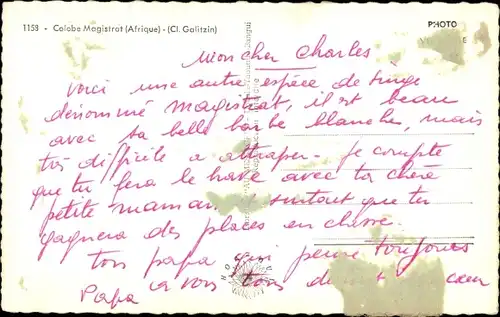 1158 - Colobe Magistrat (Afrique) - (Cl. Galitzin)
PHOTO
Mon cher Charles
Voici une autre espèce de singe
dénommé magistrat, il est beau
avec sa belle barbe blanche, mais
très difficile a attraper - Je compte
que tu sera le brave avec ta chère
petite maman surtout que tu
gagnera des places en classe.
ton papa qui pense toujours
a vous tous de cœur
Papa